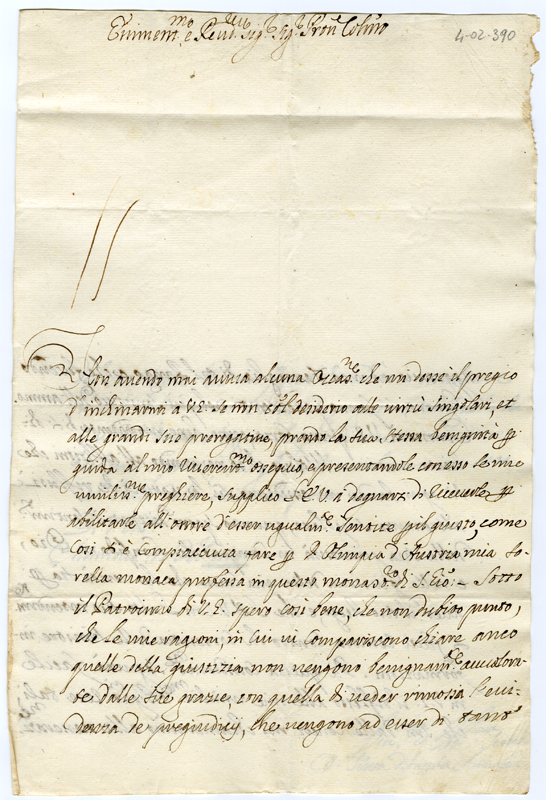 Eminent.mo e Reu.mo Sig.r Sig.r Pron Colmo
4-02-390
Non avendo mai avuta alcuna Occas.ne che mi desse il pregio
d'inchinarmi a V.E. se non col desiderio alle virtù singolari, et
alle grandi sue prerogative, prendo la sua stessa benignità p
guida al mio riverent.mo ossequio, e presentandole con esso le mie
umilis.me preghiere, supplico l'E.V. a degnarsi di riceverle p
abilitarle all'onore d'esser ugualm.te sentite p il giusto, come
così s'è compiacciuta fare p D. Olimpia d'Austria mia so-
rella monaca professa in questo monast.ro di S. Gio: - Sotto
il Patrocinio di V.E. spero così bene, che non dubito punto,
che le mie ragioni, in cui vi compariscono chiare anco
quelle della giustizia non vengono benignam.te avvalora-
te dalle sue grazie, con quella di veder rimossa l'evi-
denza de pregiudicij, che vengono ad esser di tant